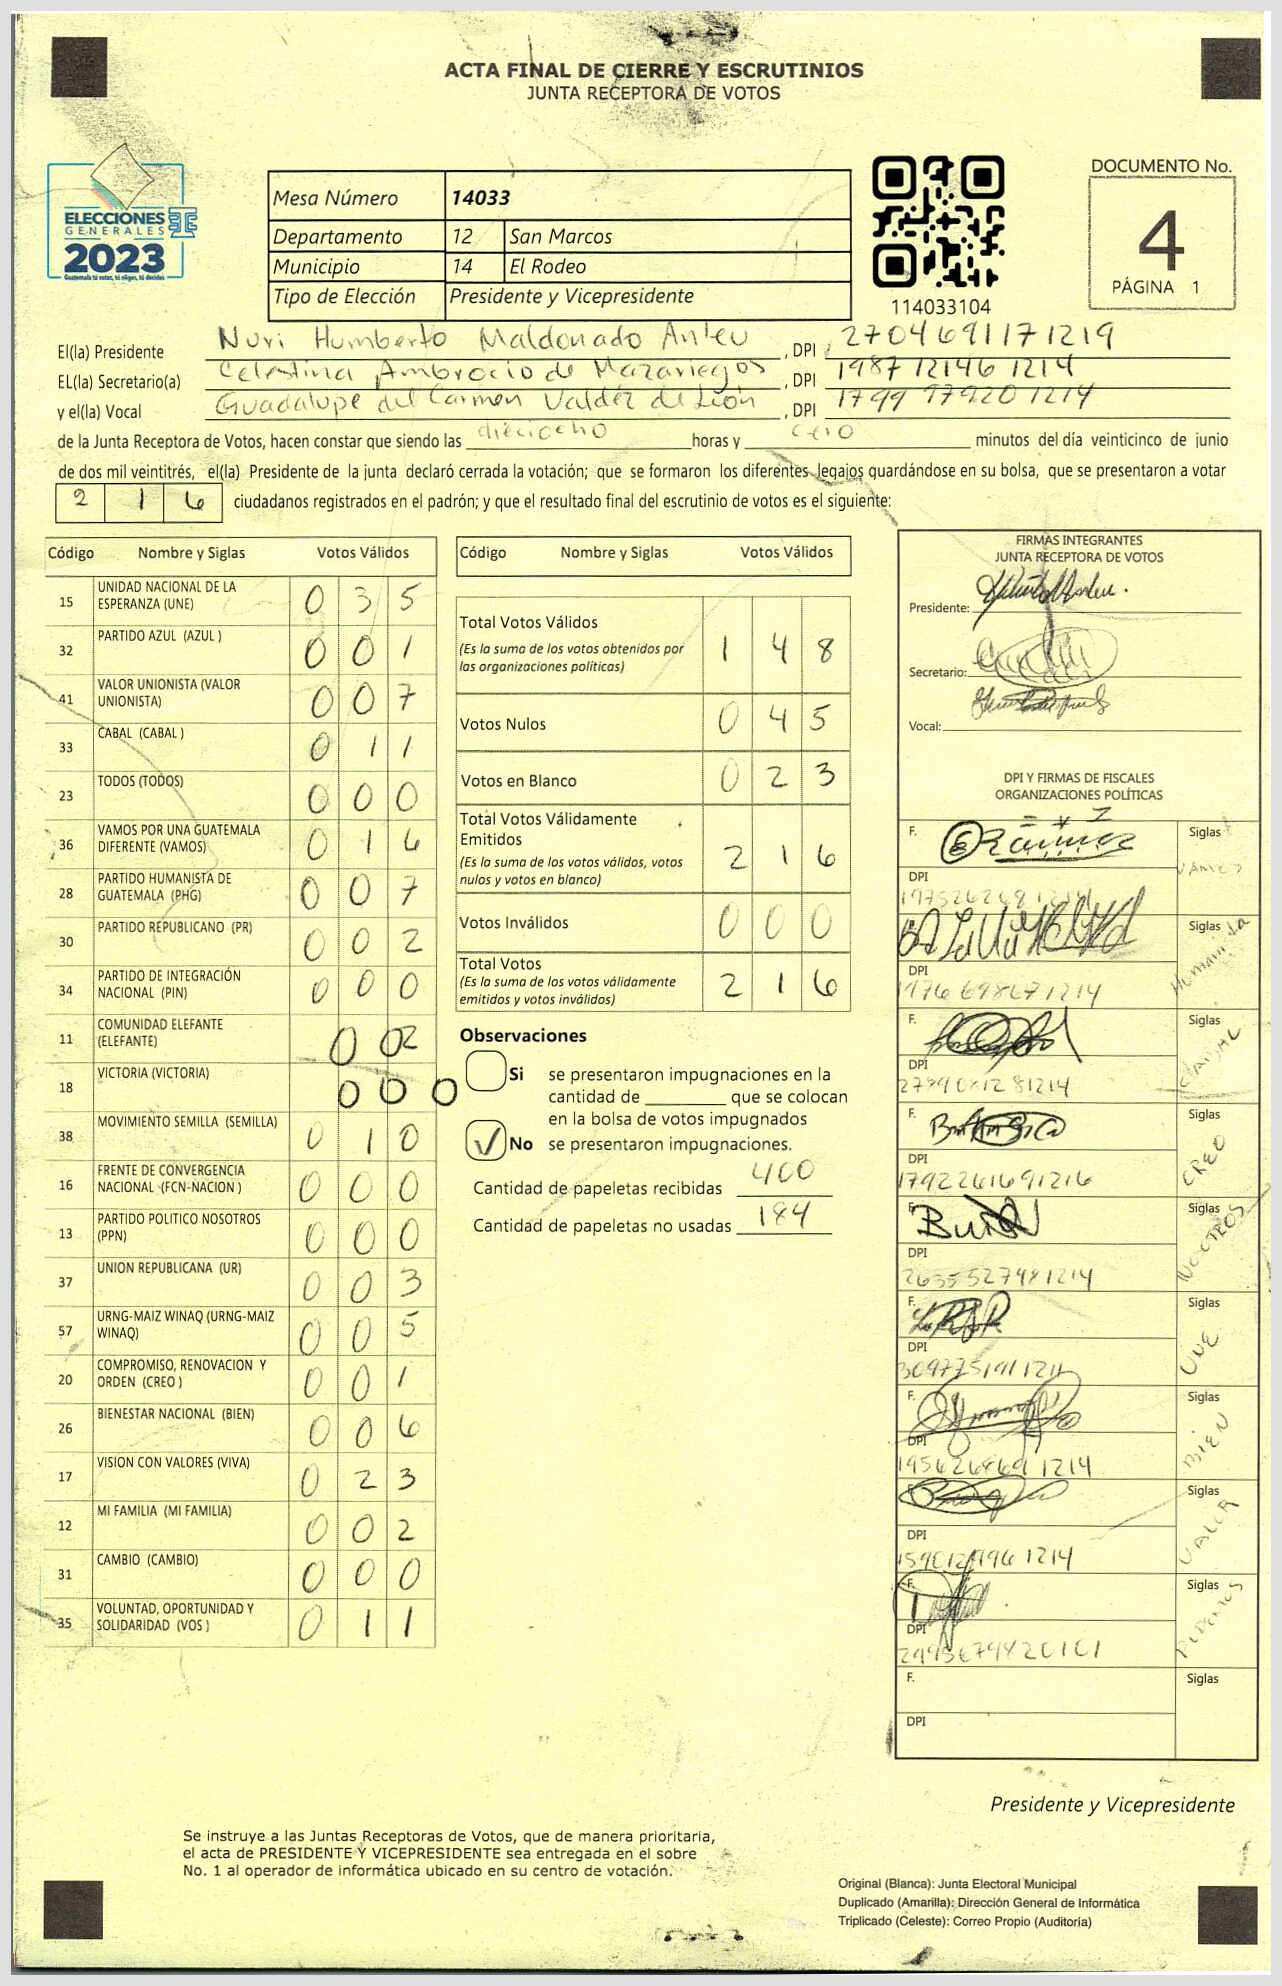 ACTA FINAL DE CIERRE Y ESCRUTINIOS
JUNTA RECEPTORA DE VOTOS
ELECCIONES
GENERALES
2023
Guatemala tú votas, tú eliges, tú decides
Mesa Número 14033
Departamento 12 San Marcos
Municipio 14 El Rodeo
Tipo de Elección Presidente y Vicepresidente
114033104
DOCUMENTO No.
4
PÁGINA 1
El(la) Presidente Nuri Humberto Maldonado Anleu, DPI 2704691171219
EL(la) Secretario(a) Celestina Ambrocio de Mazariegos, DPI 1987121461214
y el(la) Vocal Guadalupe del Carmen Valdéz de León, DPI 1799979201214
de la Junta Receptora de Votos, hacen constar que siendo las dieciocho horas y cero minutos del día veinticinco de junio
de dos mil veintitrés, el(la) Presidente de la junta declaró cerrada la votación; que se formaron los diferentes legajos guardándose en su bolsa, que se presentaron a votar
2 1 6 ciudadanos registrados en el padrón; y que el resultado final del escrutinio de votos es el siguiente:
Código Nombre y Siglas Votos Válidos
15 UNIDAD NACIONAL DE LA ESPERANZA (UNE) 0 3 5
32 PARTIDO AZUL (AZUL ) 0 0 1
41 VALOR UNIONISTA (VALOR UNIONISTA) 0 0 7
33 CABAL (CABAL ) 0 1 1
23 TODOS (TODOS) 0 0 0
36 VAMOS POR UNA GUATEMALA DIFERENTE (VAMOS) 0 1 6
28 PARTIDO HUMANISTA DE GUATEMALA (PHG) 0 0 7
30 PARTIDO REPUBLICANO (PR) 0 0 2
34 PARTIDO DE INTEGRACIÓN NACIONAL (PIN) 0 0 0
11 COMUNIDAD ELEFANTE (ELEFANTE) 0 0 2
18 VICTORIA (VICTORIA) 0 0 0
38 MOVIMIENTO SEMILLA (SEMILLA) 0 1 0
16 FRENTE DE CONVERGENCIA NACIONAL (FCN-NACION ) 0 0 0
13 PARTIDO POLITICO NOSOTROS (PPN) 0 0 0
37 UNION REPUBLICANA (UR) 0 0 3
57 URNG-MAIZ WINAQ (URNG-MAIZ WINAQ) 0 0 5
20 COMPROMISO, RENOVACION Y ORDEN (CREO ) 0 0 1
26 BIENESTAR NACIONAL (BIEN) 0 0 6
17 VISION CON VALORES (VIVA) 0 2 3
12 MI FAMILIA (MI FAMILIA) 0 0 2
31 CAMBIO (CAMBIO) 0 0 0
35 VOLUNTAD, OPORTUNIDAD Y SOLIDARIDAD (VOS ) 0 1 1
Código Nombre y Siglas Votos Válidos
Total Votos Válidos 1 4 8
(Es la suma de los votos obtenidos por
las organizaciones políticas)
Votos Nulos 0 4 5
Votos en Blanco 0 2 3
Total Votos Válidamente
Emitidos 2 1 6
(Es la suma de los votos válidos, votos
nulos y votos en blanco)
Votos Inválidos 0 0 0
Total Votos 2 1 6
(Es la suma de los votos válidamente
emitidos y votos inválidos)
Observaciones
Si se presentaron impugnaciones en la
cantidad de ________ que se colocan
en la bolsa de votos impugnados
No se presentaron impugnaciones.
Cantidad de papeletas recibidas 400
Cantidad de papeletas no usadas 184
FIRMAS INTEGRANTES
JUNTA RECEPTORA DE VOTOS
Presidente:
Secretario:
Vocal:
DPI Y FIRMAS DE FISCALES
ORGANIZACIONES POLÍTICAS
F. Siglas VAMOS
DPI
F. Siglas Humanista
DPI
1976698671214
F. Siglas
DPI
F. Siglas CREO
DPI
1792261691216
F. Siglas NOSOTROS
DPI
2635527481214
F. Siglas UNE
DPI
F. Siglas BIEN
DPI
1956268691214
F. Siglas VALOR
DPI
F. Siglas
DPI
F. Siglas
DPI
Presidente y Vicepresidente
Se instruye a las Juntas Receptoras de Votos, que de manera prioritaria,
el acta de PRESIDENTE Y VICEPRESIDENTE sea entregada en el sobre
No. 1 al operador de informática ubicado en su centro de votación.
Original (Blanca): Junta Electoral Municipal
Duplicado (Amarilla): Dirección General de Informática
Triplicado (Celeste): Correo Propio (Auditoría)